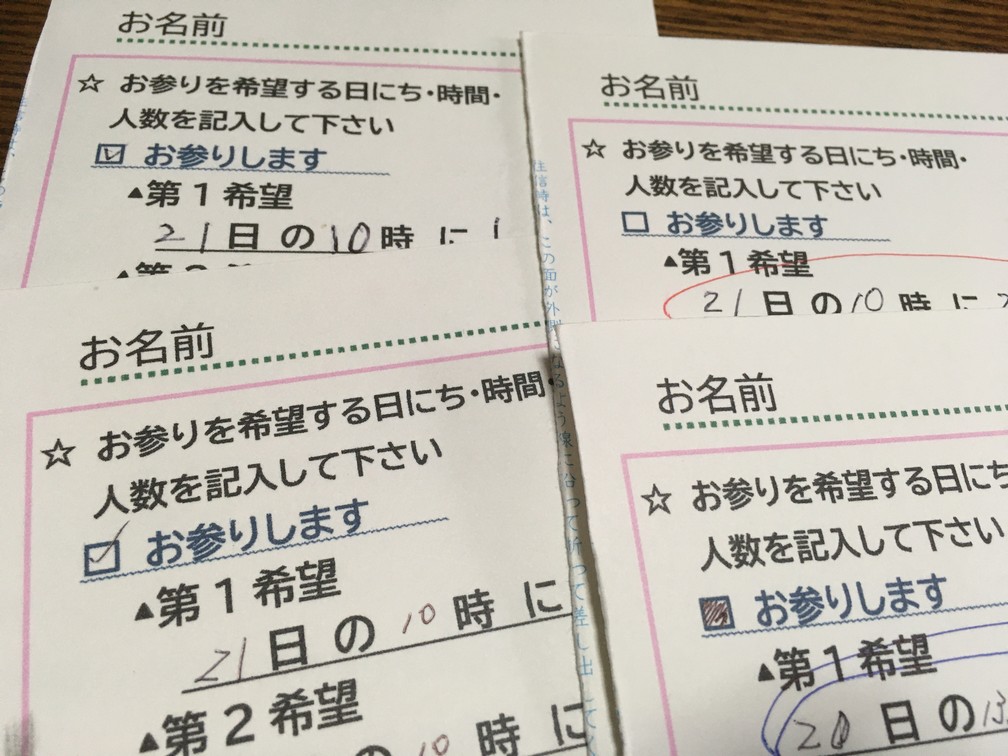 お名前
☆ お参りを希望する日にち・時間・
人数を記入して下さい
☑ お参りします
▲第1希望
21日の10時に1
お名前
☆ お参りを希望する日にち・時間・
人数を記入して下さい
□ お参りします
▲第1希望
21日の10時に2
お名前
☆ お参りを希望する日にち・時間・
人数を記入して下さい
☑ お参りします
▲第1希望
21日の10時に
▲第2希望
日の10時に
お名前
☆ お参りを希望する日にち
人数を記入して下さい
■ お参りします
▲第1希望
20日の13